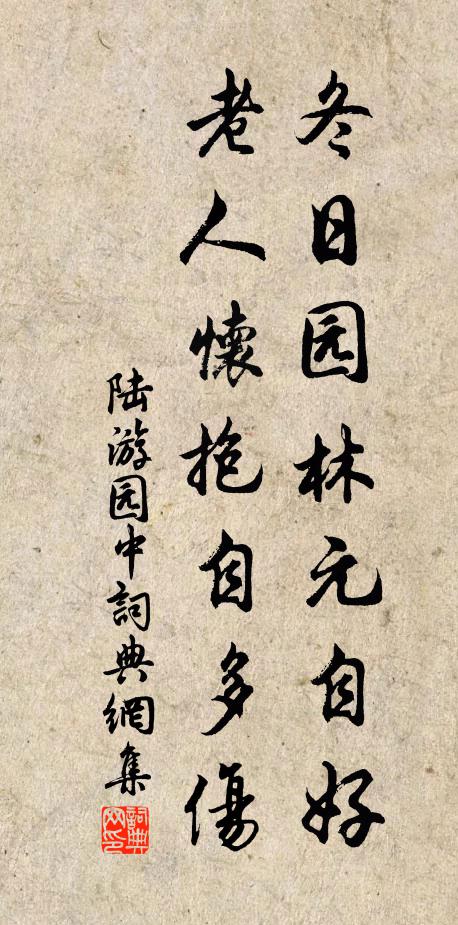 冬日园林元自好
老人懷抱自多傷
陆游园中詞典網集
詞典网印